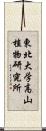 東北大学高山
植物研究所